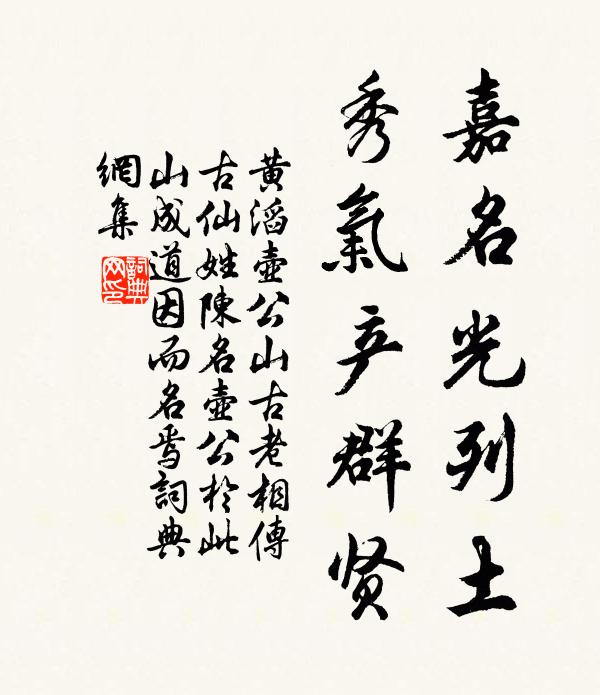 嘉名光列土
秀氣产群贤
黄滔壺公山古老相傳
古仙姓陳名壺公於此
山成道因而名焉詞典
網集
詞典网印